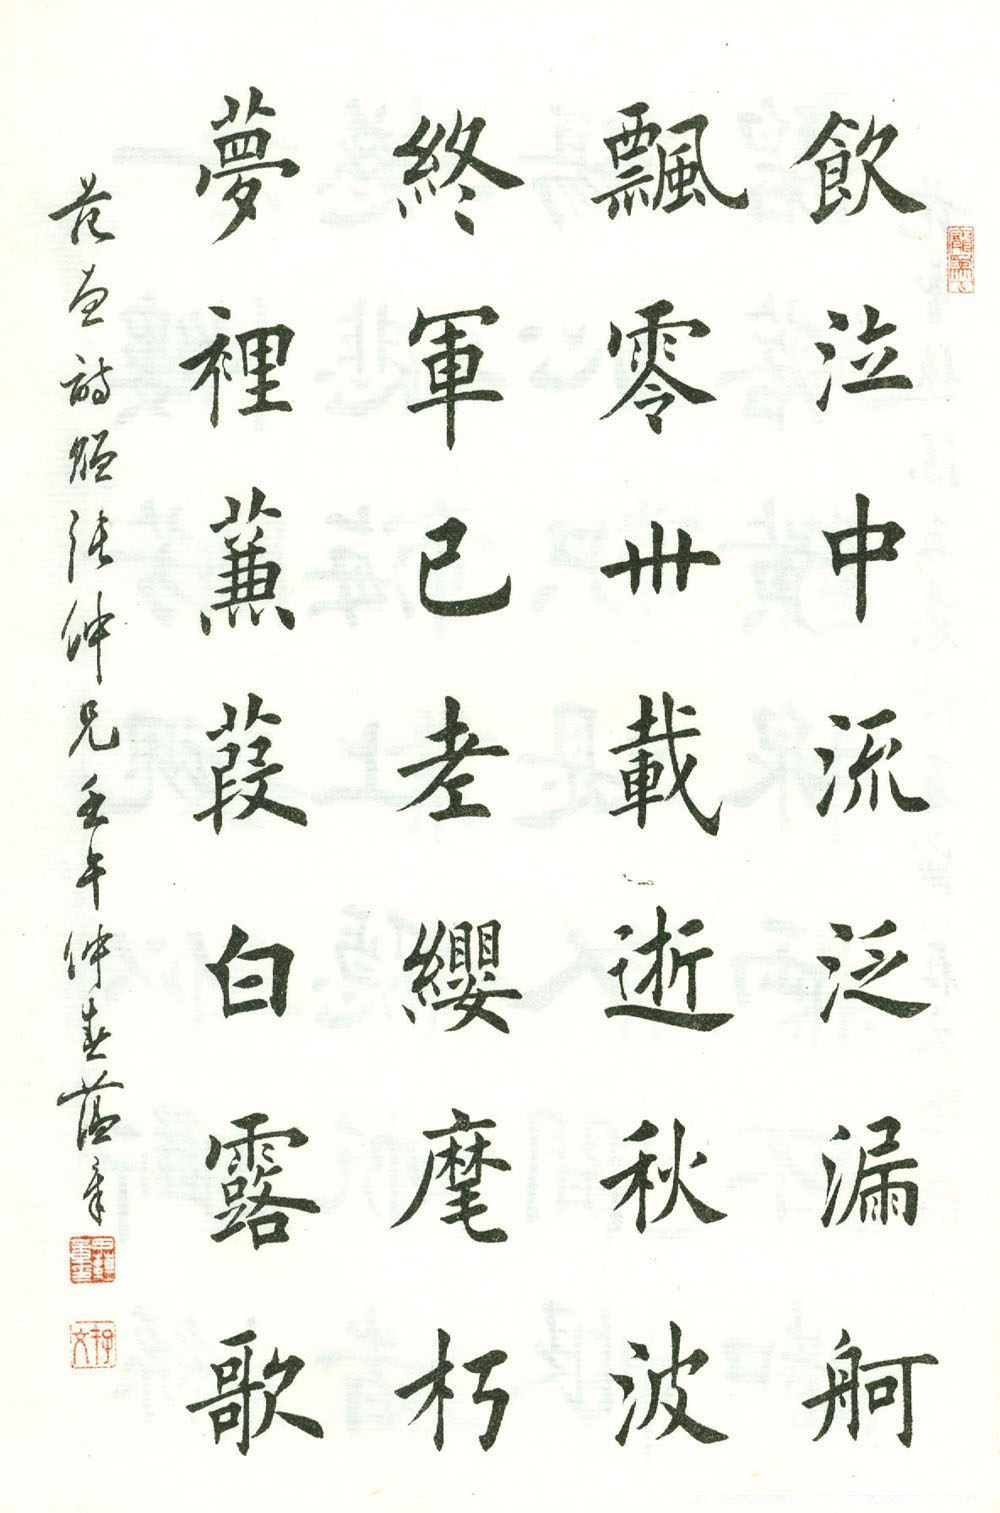 飲泣中流泛漏舸
飄零卅載逝秋波
終軍已老纓麾朽
夢裡蒹葭白露歌
范曾詩贈張仲兄壬午仲春蘊章